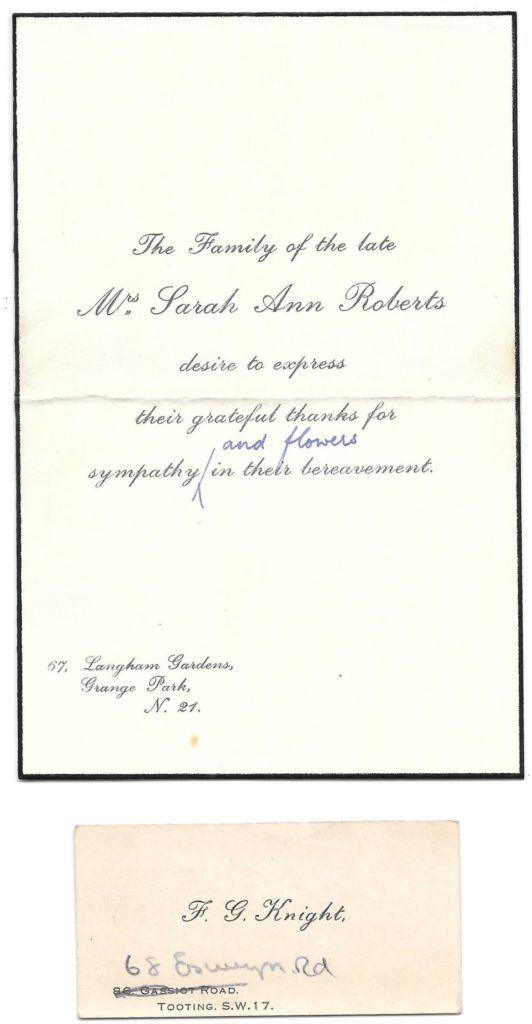 The Family of the late
Mrs Sarah Ann Roberts
desire to express
their grateful thanks for
and flowers
sympathy / in their bereavement.
67, Langham Gardens,
Grange Park,
N. 21.
F. G. Knight,
68 Eswyn Rd
86, GASSIOT ROAD.
TOOTING, S.W.17.